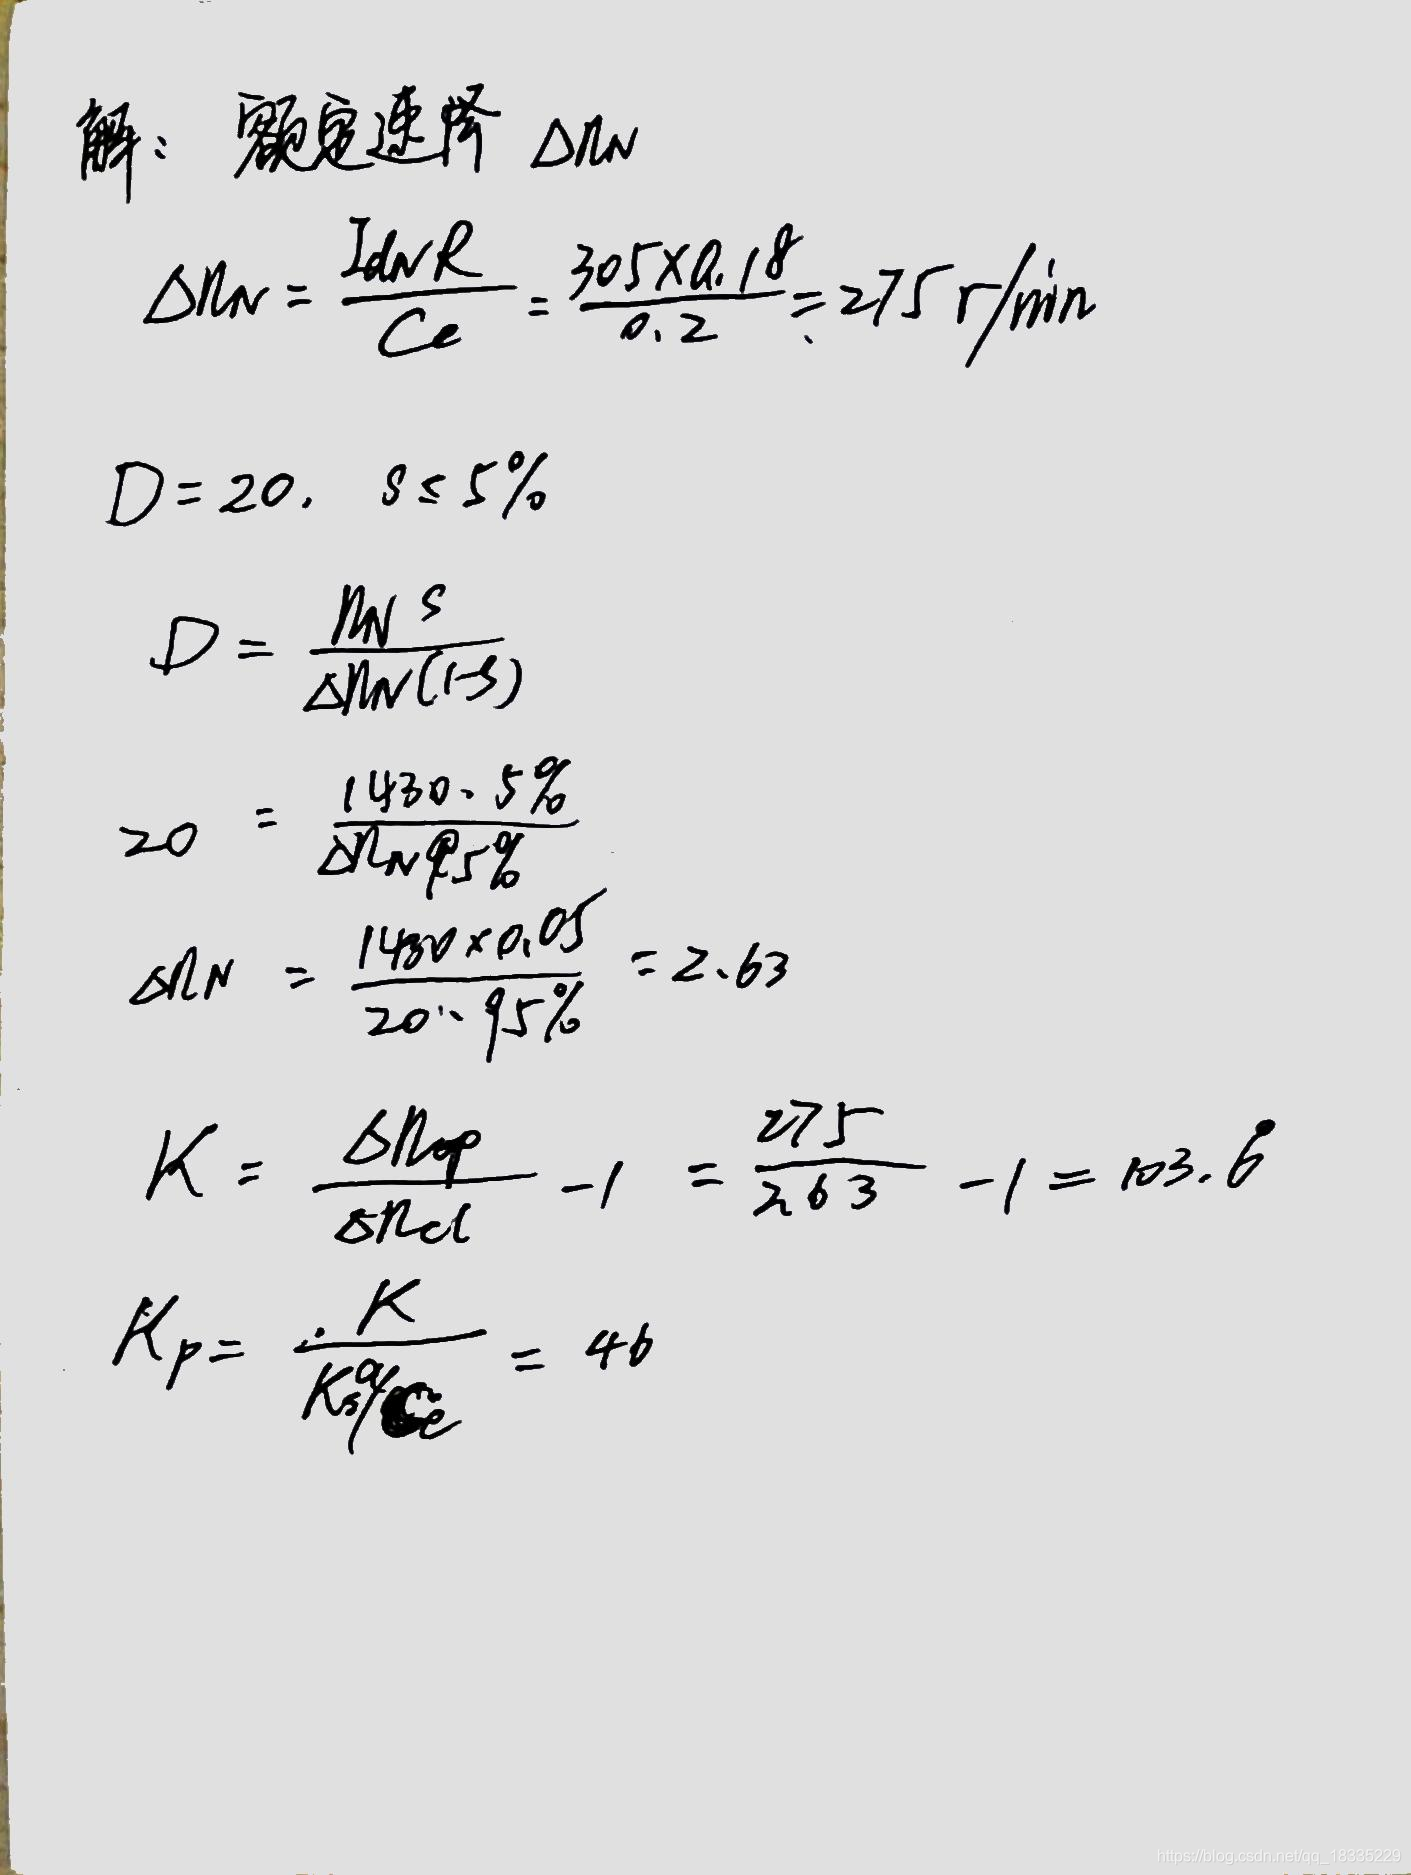 解：额定速降 Δn_N
Δn_N = I_dN R / Ce = 305×0.18 / 0.2 = 275 r/min
D = 20. s ≤ 5%
D = n_N s / Δn_N(1-s)
20 = 1430·5% / Δn_N 95%
Δn_N = 1430×0.05 / 20·95% = 2.63
K = Δn_op / Δn_cl - 1 = 275 / 263 - 1 = 103.6
Kp = K / Ks α/Ce = 46
https://blog.csdn.net/qq_18335229